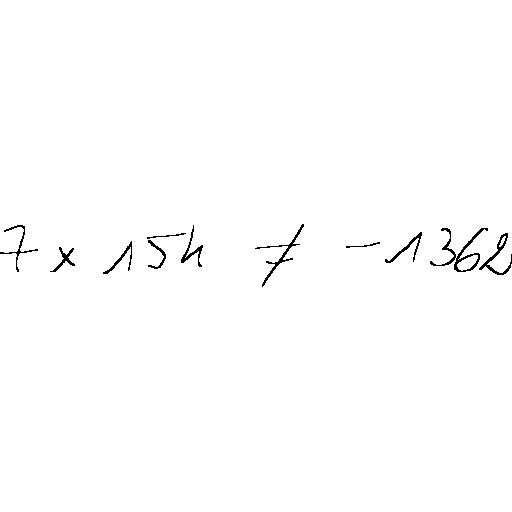 7 x 154 ≠ -1362